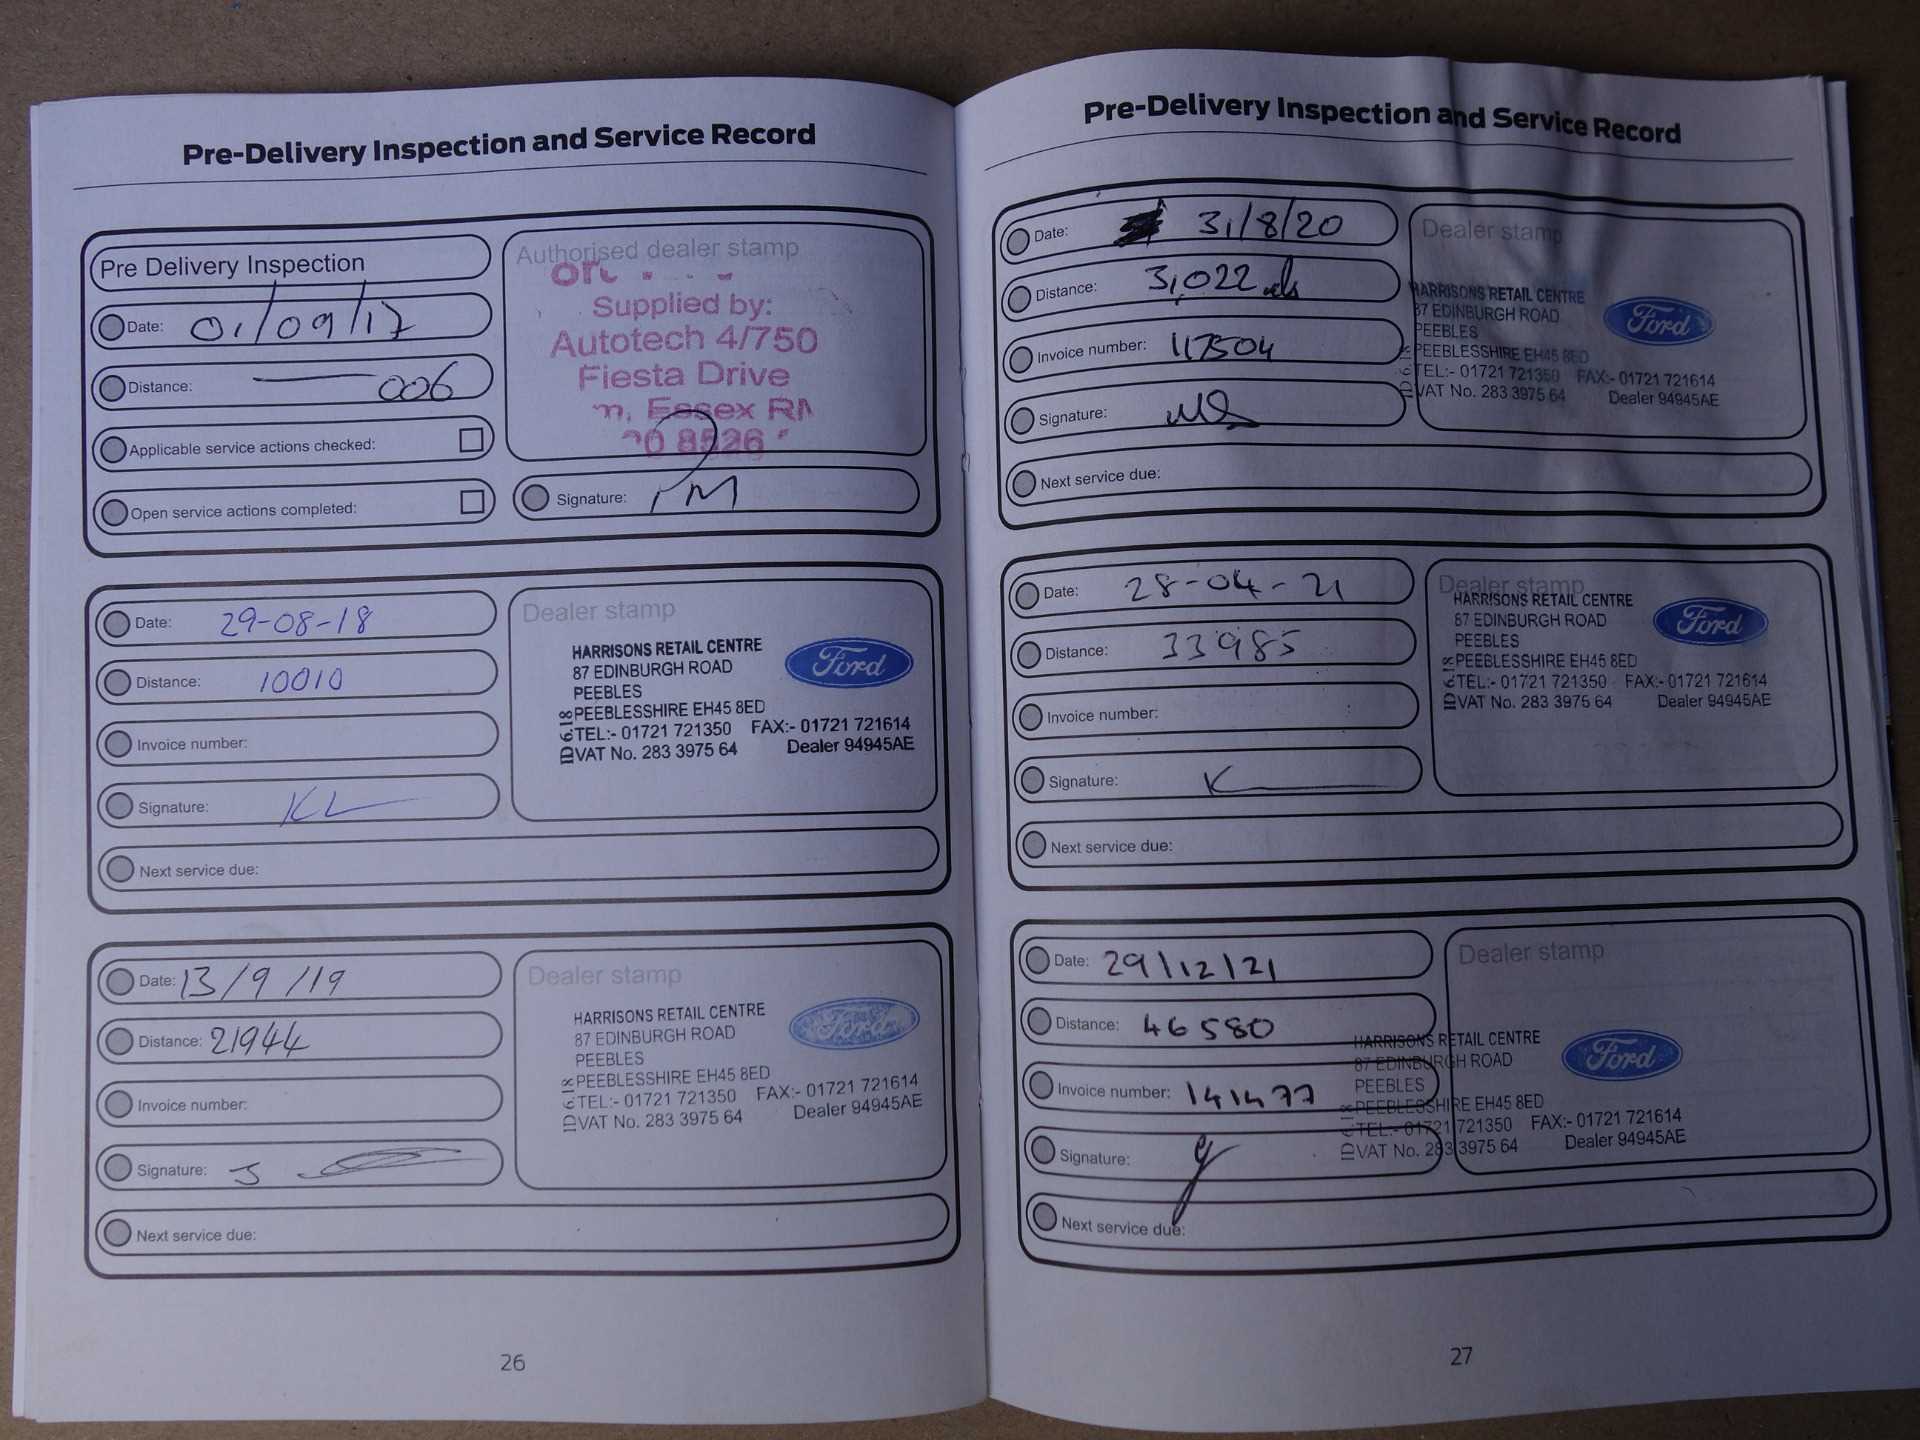 Pre-Delivery Inspection and Service Record
Pre Delivery Inspection
Date: 01/09/17
Distance: 006
Applicable service actions checked:
Open service actions completed:
Authorised dealer stamp
Supplied by:
Autotech 4/750
Fiesta Drive
Essex
8526
Signature: PM
Date: 29-08-18
Distance: 10010
Invoice number:
Signature: KL
Next service due:
Dealer stamp
HARRISONS RETAIL CENTRE
87 EDINBURGH ROAD
PEEBLES
PEEBLESSHIRE EH45 8ED
TEL:- 01721 721350 FAX:- 01721 721614
VAT No. 283 3975 64 Dealer 94945AE
ID 618
Ford
Date: 13/9/19
Distance: 21944
Invoice number:
Signature:
Next service due:
Dealer stamp
HARRISONS RETAIL CENTRE
87 EDINBURGH ROAD
PEEBLES
PEEBLESSHIRE EH45 8ED
TEL:- 01721 721350 FAX:- 01721 721614
VAT No. 283 3975 64 Dealer 94945AE
Ford
26
Pre-Delivery Inspection and Service Record
Date: 31/8/20
Distance: 31,022 mls
Invoice number: 117504
Signature:
Next service due:
Dealer stamp
HARRISONS RETAIL CENTRE
87 EDINBURGH ROAD
PEEBLES
PEEBLESSHIRE EH45 8ED
TEL:- 01721 721350 FAX:- 01721 721614
VAT No. 283 3975 64 Dealer 94945AE
Ford
Date: 28-04-21
Distance: 33985
Invoice number:
Signature: K
Next service due:
Dealer stamp
HARRISONS RETAIL CENTRE
87 EDINBURGH ROAD
PEEBLES
PEEBLESSHIRE EH45 8ED
TEL:- 01721 721350 FAX:- 01721 721614
VAT No. 283 3975 64 Dealer 94945AE
Ford
Date: 29/12/21
Distance: 46580
Invoice number: 141477
Signature:
Next service due:
Dealer stamp
HARRISONS RETAIL CENTRE
87 EDINBURGH ROAD
PEEBLES
PEEBLESSHIRE EH45 8ED
TEL:- 01721 721350 FAX:- 01721 721614
VAT No. 283 3975 64 Dealer 94945AE
Ford
27